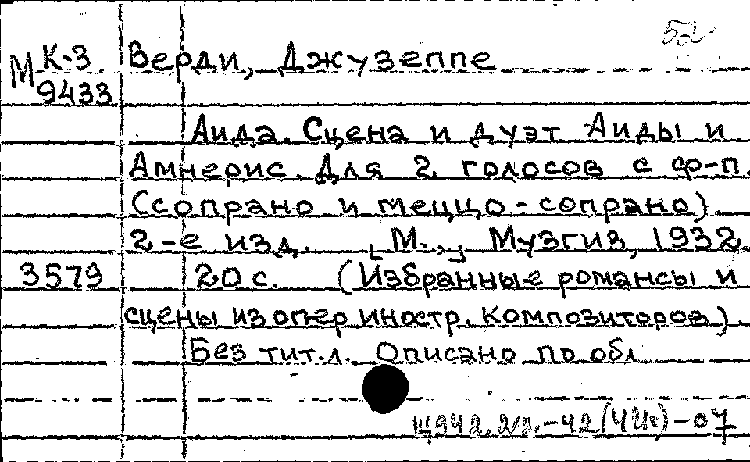 52
М К-3 Верди, Джузеппе
9433
Аида. Сцена и дуэт Аиды и
Амнерис. Для 2 голосов с ф-п.
(сопрано и меццо-сопрано)
2-е изд. [М.,] Музгиз, 1932
3579 20 с. (Избранные романсы и
сцены из опер иностр. композиторов).
Без тит. л. Описано по обл